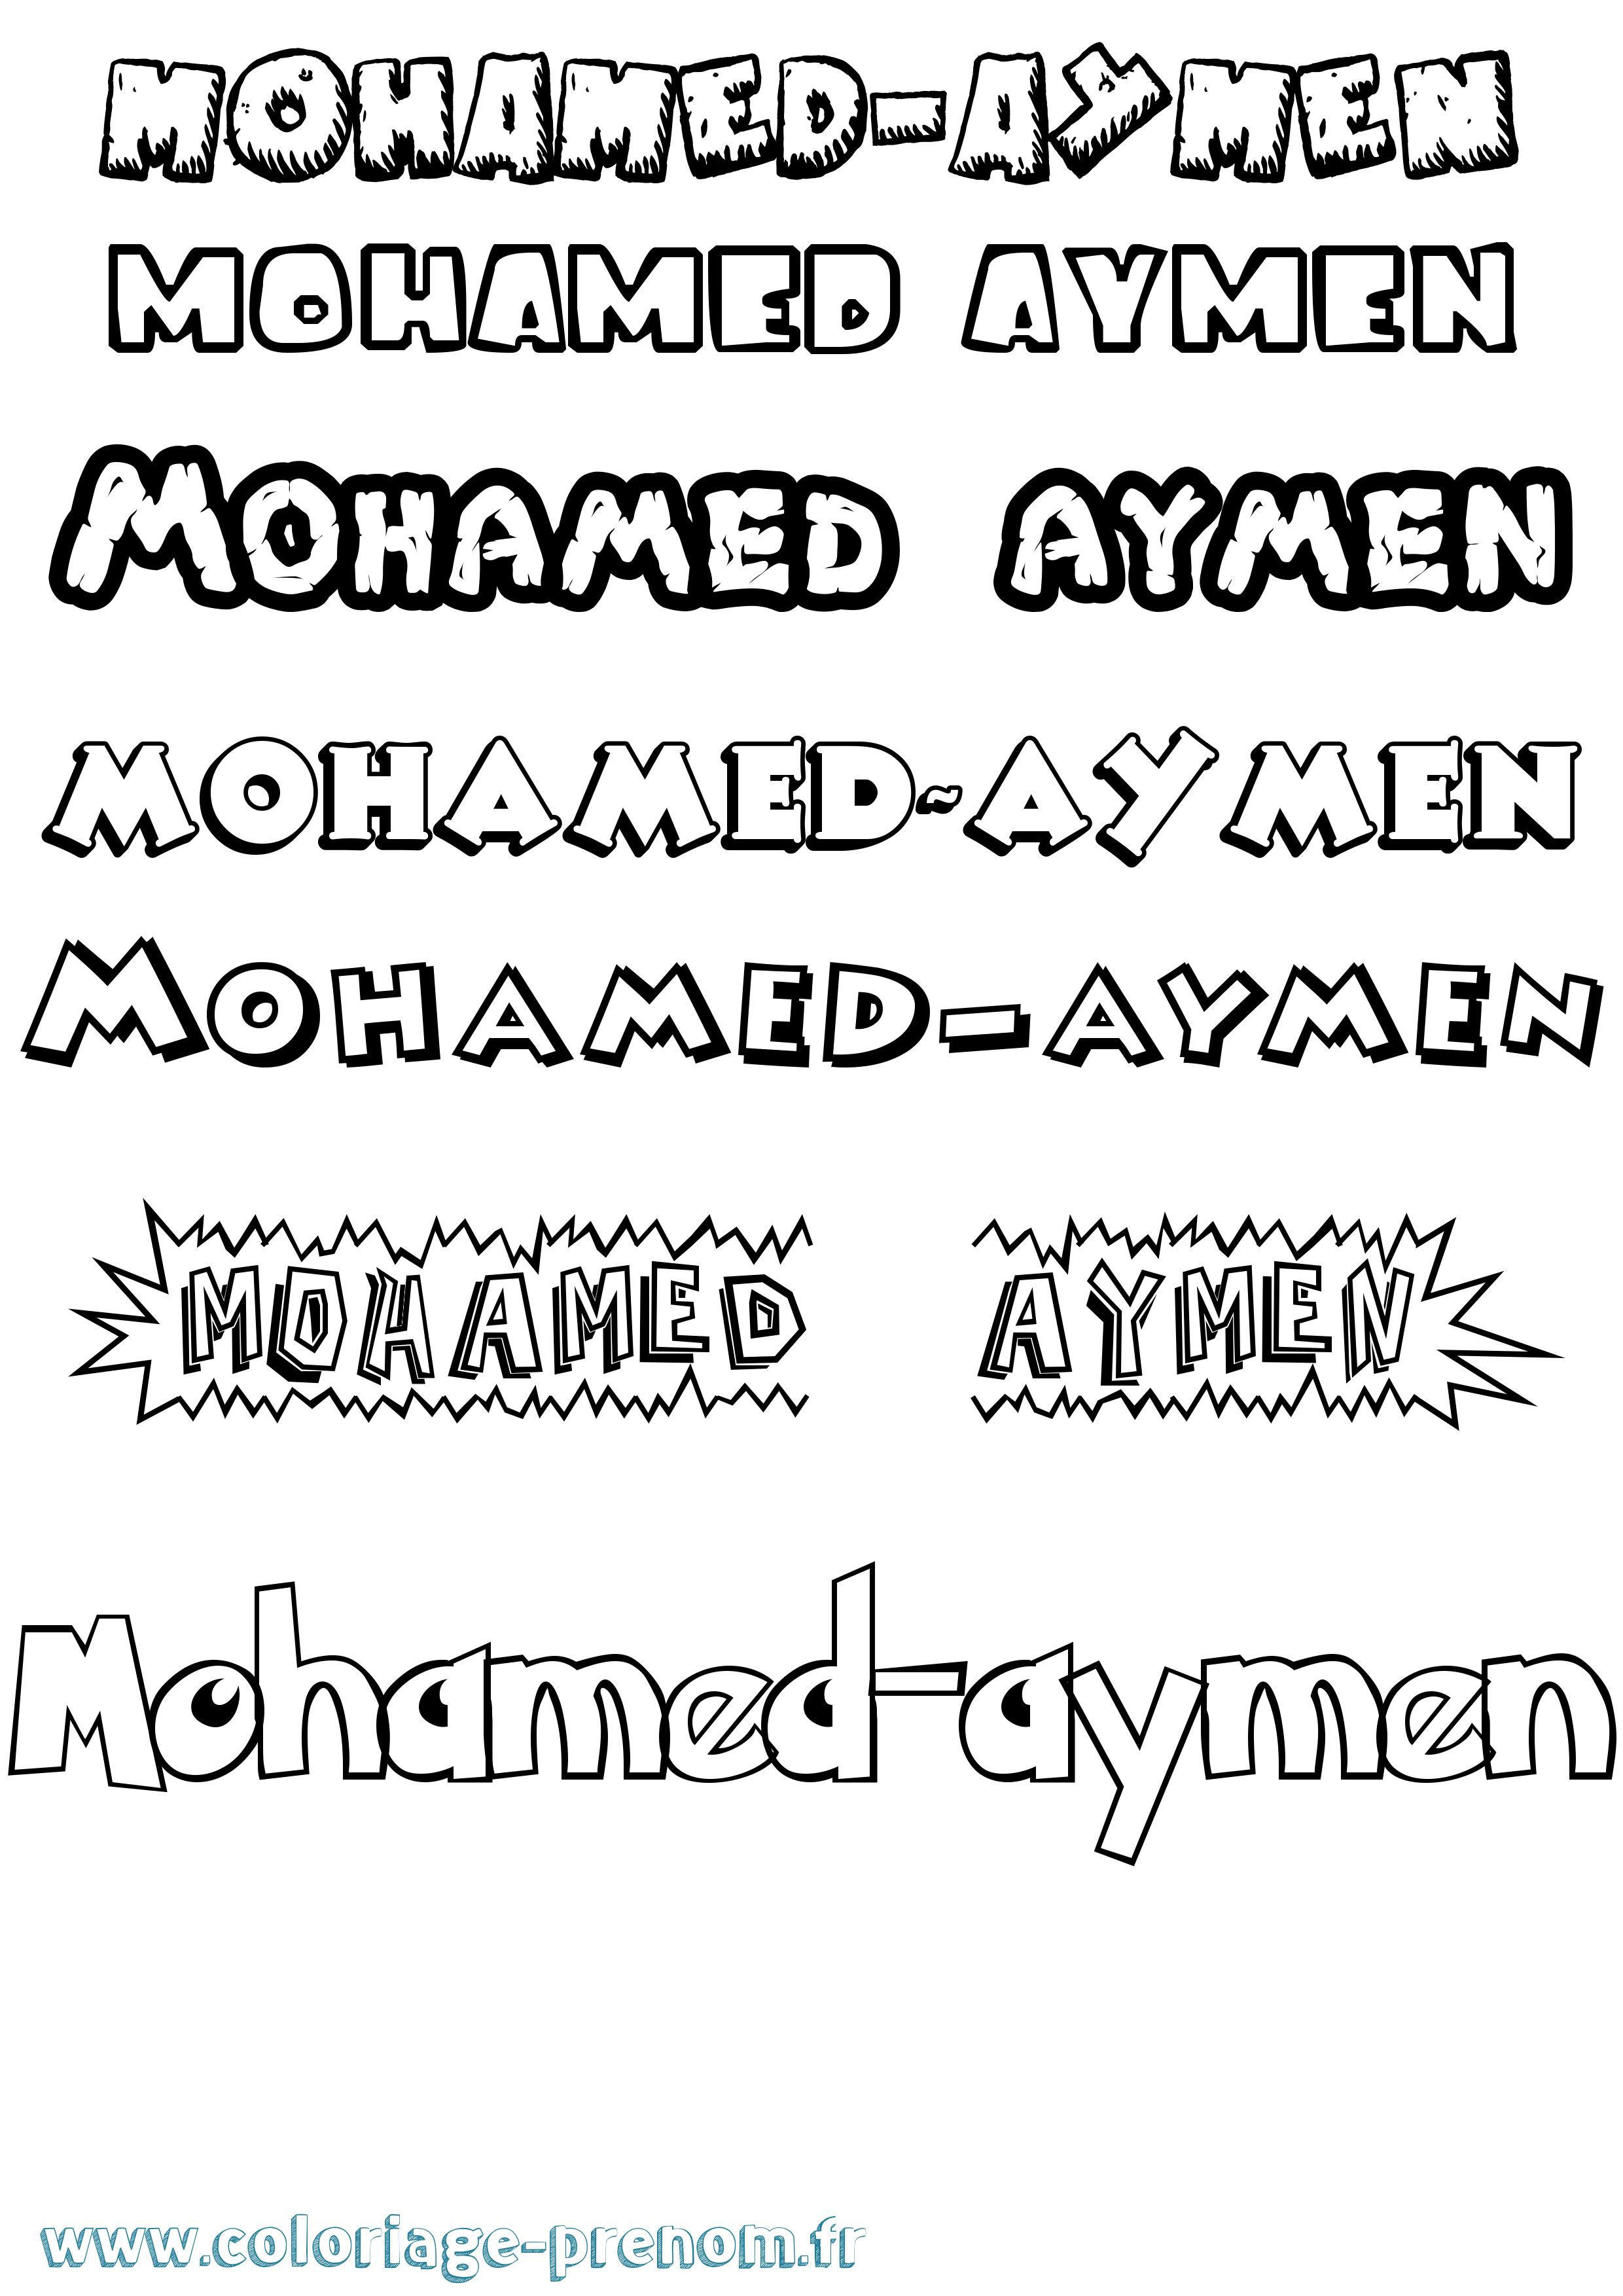 MOHAMED-AYMEN
MOHAMED AYMEN
MOHAMED AYMEN
MOHAMED-AYMEN
MOHAMED-AYMEN
MOHAMED AYMEN
Mohamed-aymen
www.coloriage-prenom.fr